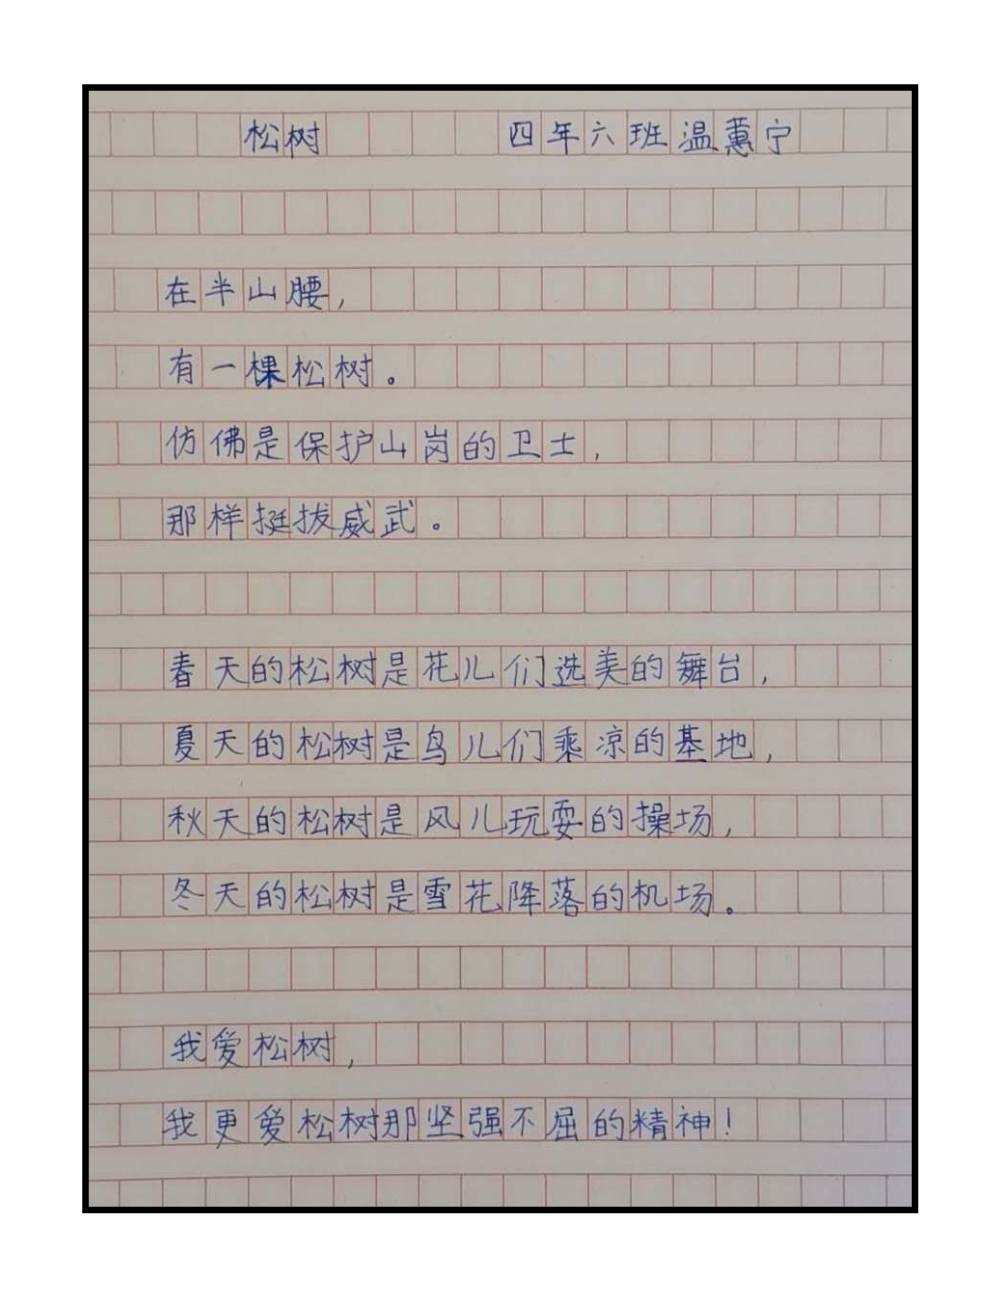 松树 四年六班温蕙宁
在半山腰，
有一棵松树。
仿佛是保护山岗的卫士，
那样挺拔威武。
春天的松树是花儿们选美的舞台，
夏天的松树是鸟儿们乘凉的基地，
秋天的松树是风儿玩耍的操场，
冬天的松树是雪花降落的机场。
我爱松树，
我更爱松树那坚强不屈的精神！